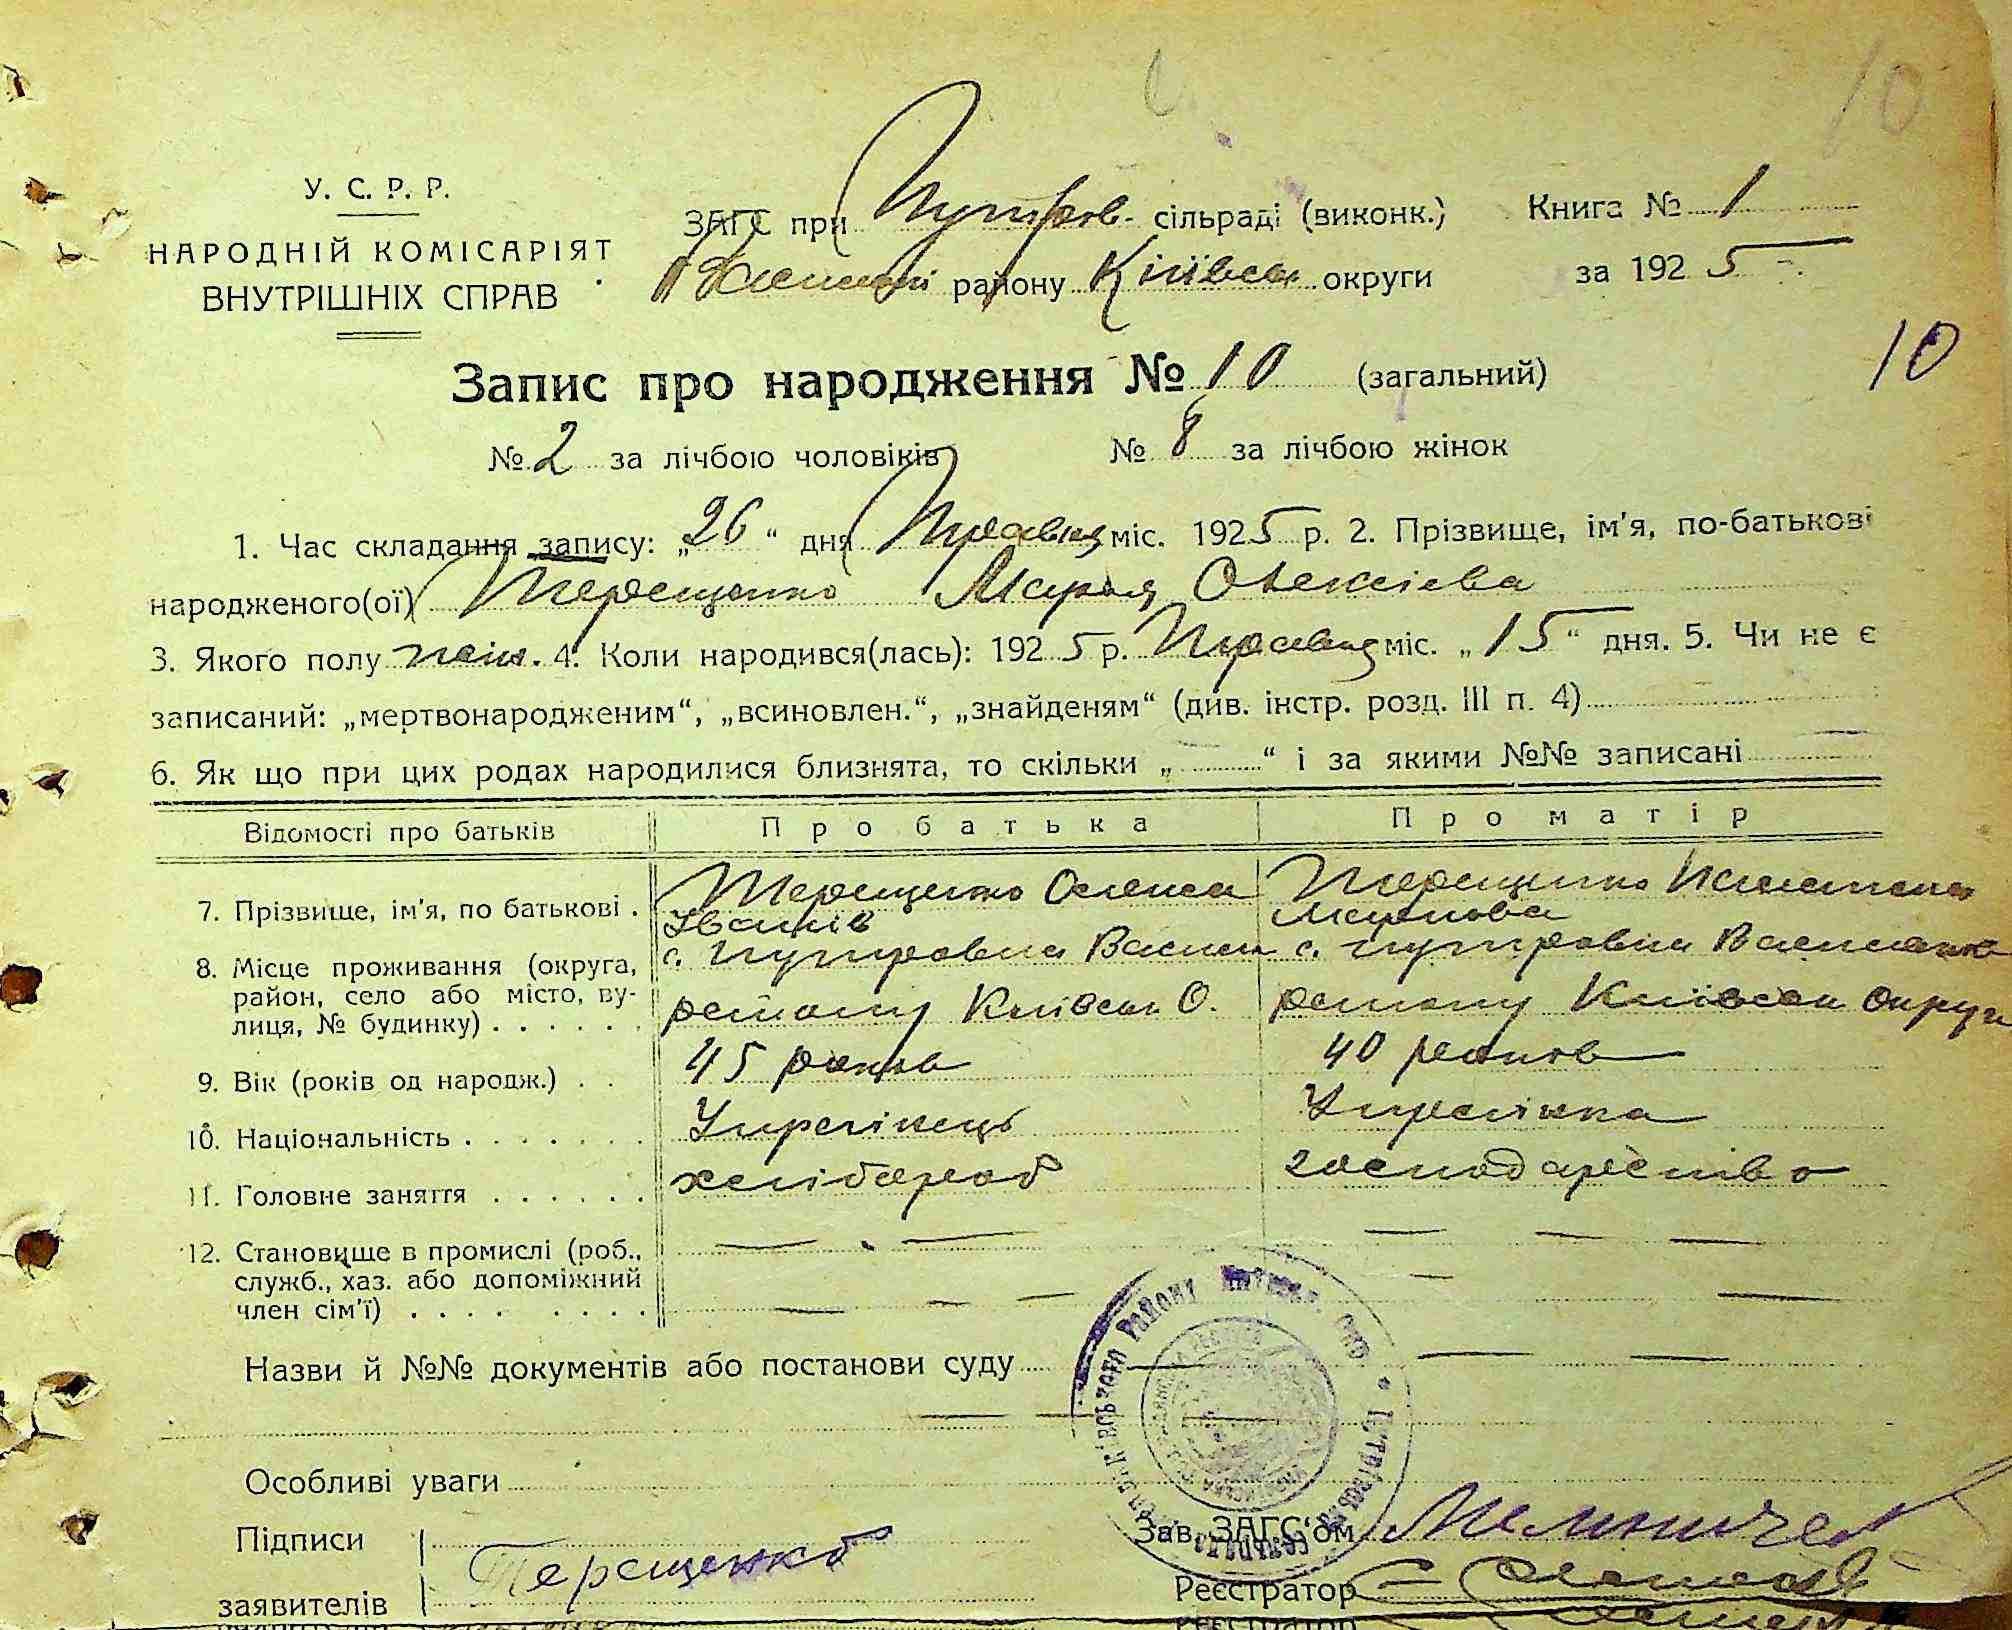 10
У. С. Р. Р.
НАРОДНІЙ КОМІСАРІЯТ
ВНУТРІШНІХ СПРАВ
ЗАГС при Путров- сільраді (виконк.)
району Київськ округи
Книга № 1
за 1925
10
Запис про народження № 10 (загальний)
№ 2 за лічбою чоловіків № 8 за лічбою жінок
1. Час складання запису: „26“ дня Травця міс. 1925 р. 2. Прізвище, ім'я, по-батькові
народженого(ої) Терещенко Марья Олексієва
3. Якого полу жін. 4. Коли народився(лась): 1925 р. Травця міс. „15“ дня. 5. Чи не є
записаний: „мертвонародженим“, „всиновлен.“, „знайденям“ (див. інстр. розд. III п. 4)
6. Як що при цих родах народилися близнята, то скільки „ “ і за якими №№ записані
Відомості про батьків Про батька Про матір
7. Прізвище, ім'я, по батькові . Терещенко Олекса Іванів Терещенко
8. Місце проживання (округа, район, село або місто, вулиця, № будинку) с. Путровка Васильк районку Київськ О. с. Путровка Васильков районку Київськ округи
9. Вік (років од народж.) . . 45 років 40 років
10. Національність . . . . . . . Українець Українка
11. Головне заняття . . . . . . хлібороб господарство
12. Становище в промислі (роб., служб., хаз. або допоміжний член сім'ї) . . . . . . . .
Назви й №№ документів або постанови суду
Особливі уваги
Підписи
заявителів
Терещенко
Зав. ЗАГС'ом
Реєстратор